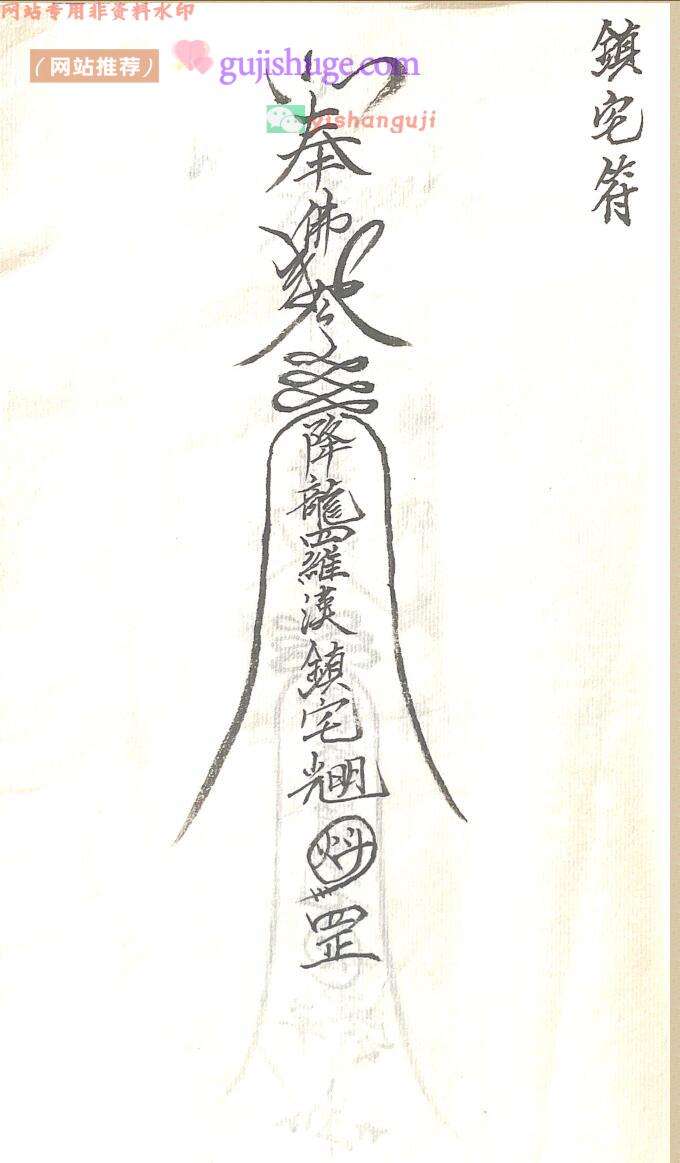 网站专用非资料水印
（网站推荐） gujishuge.com
yishanguji
鎮宅符
奉
佛
降龍羅漢鎮宅光明
罡